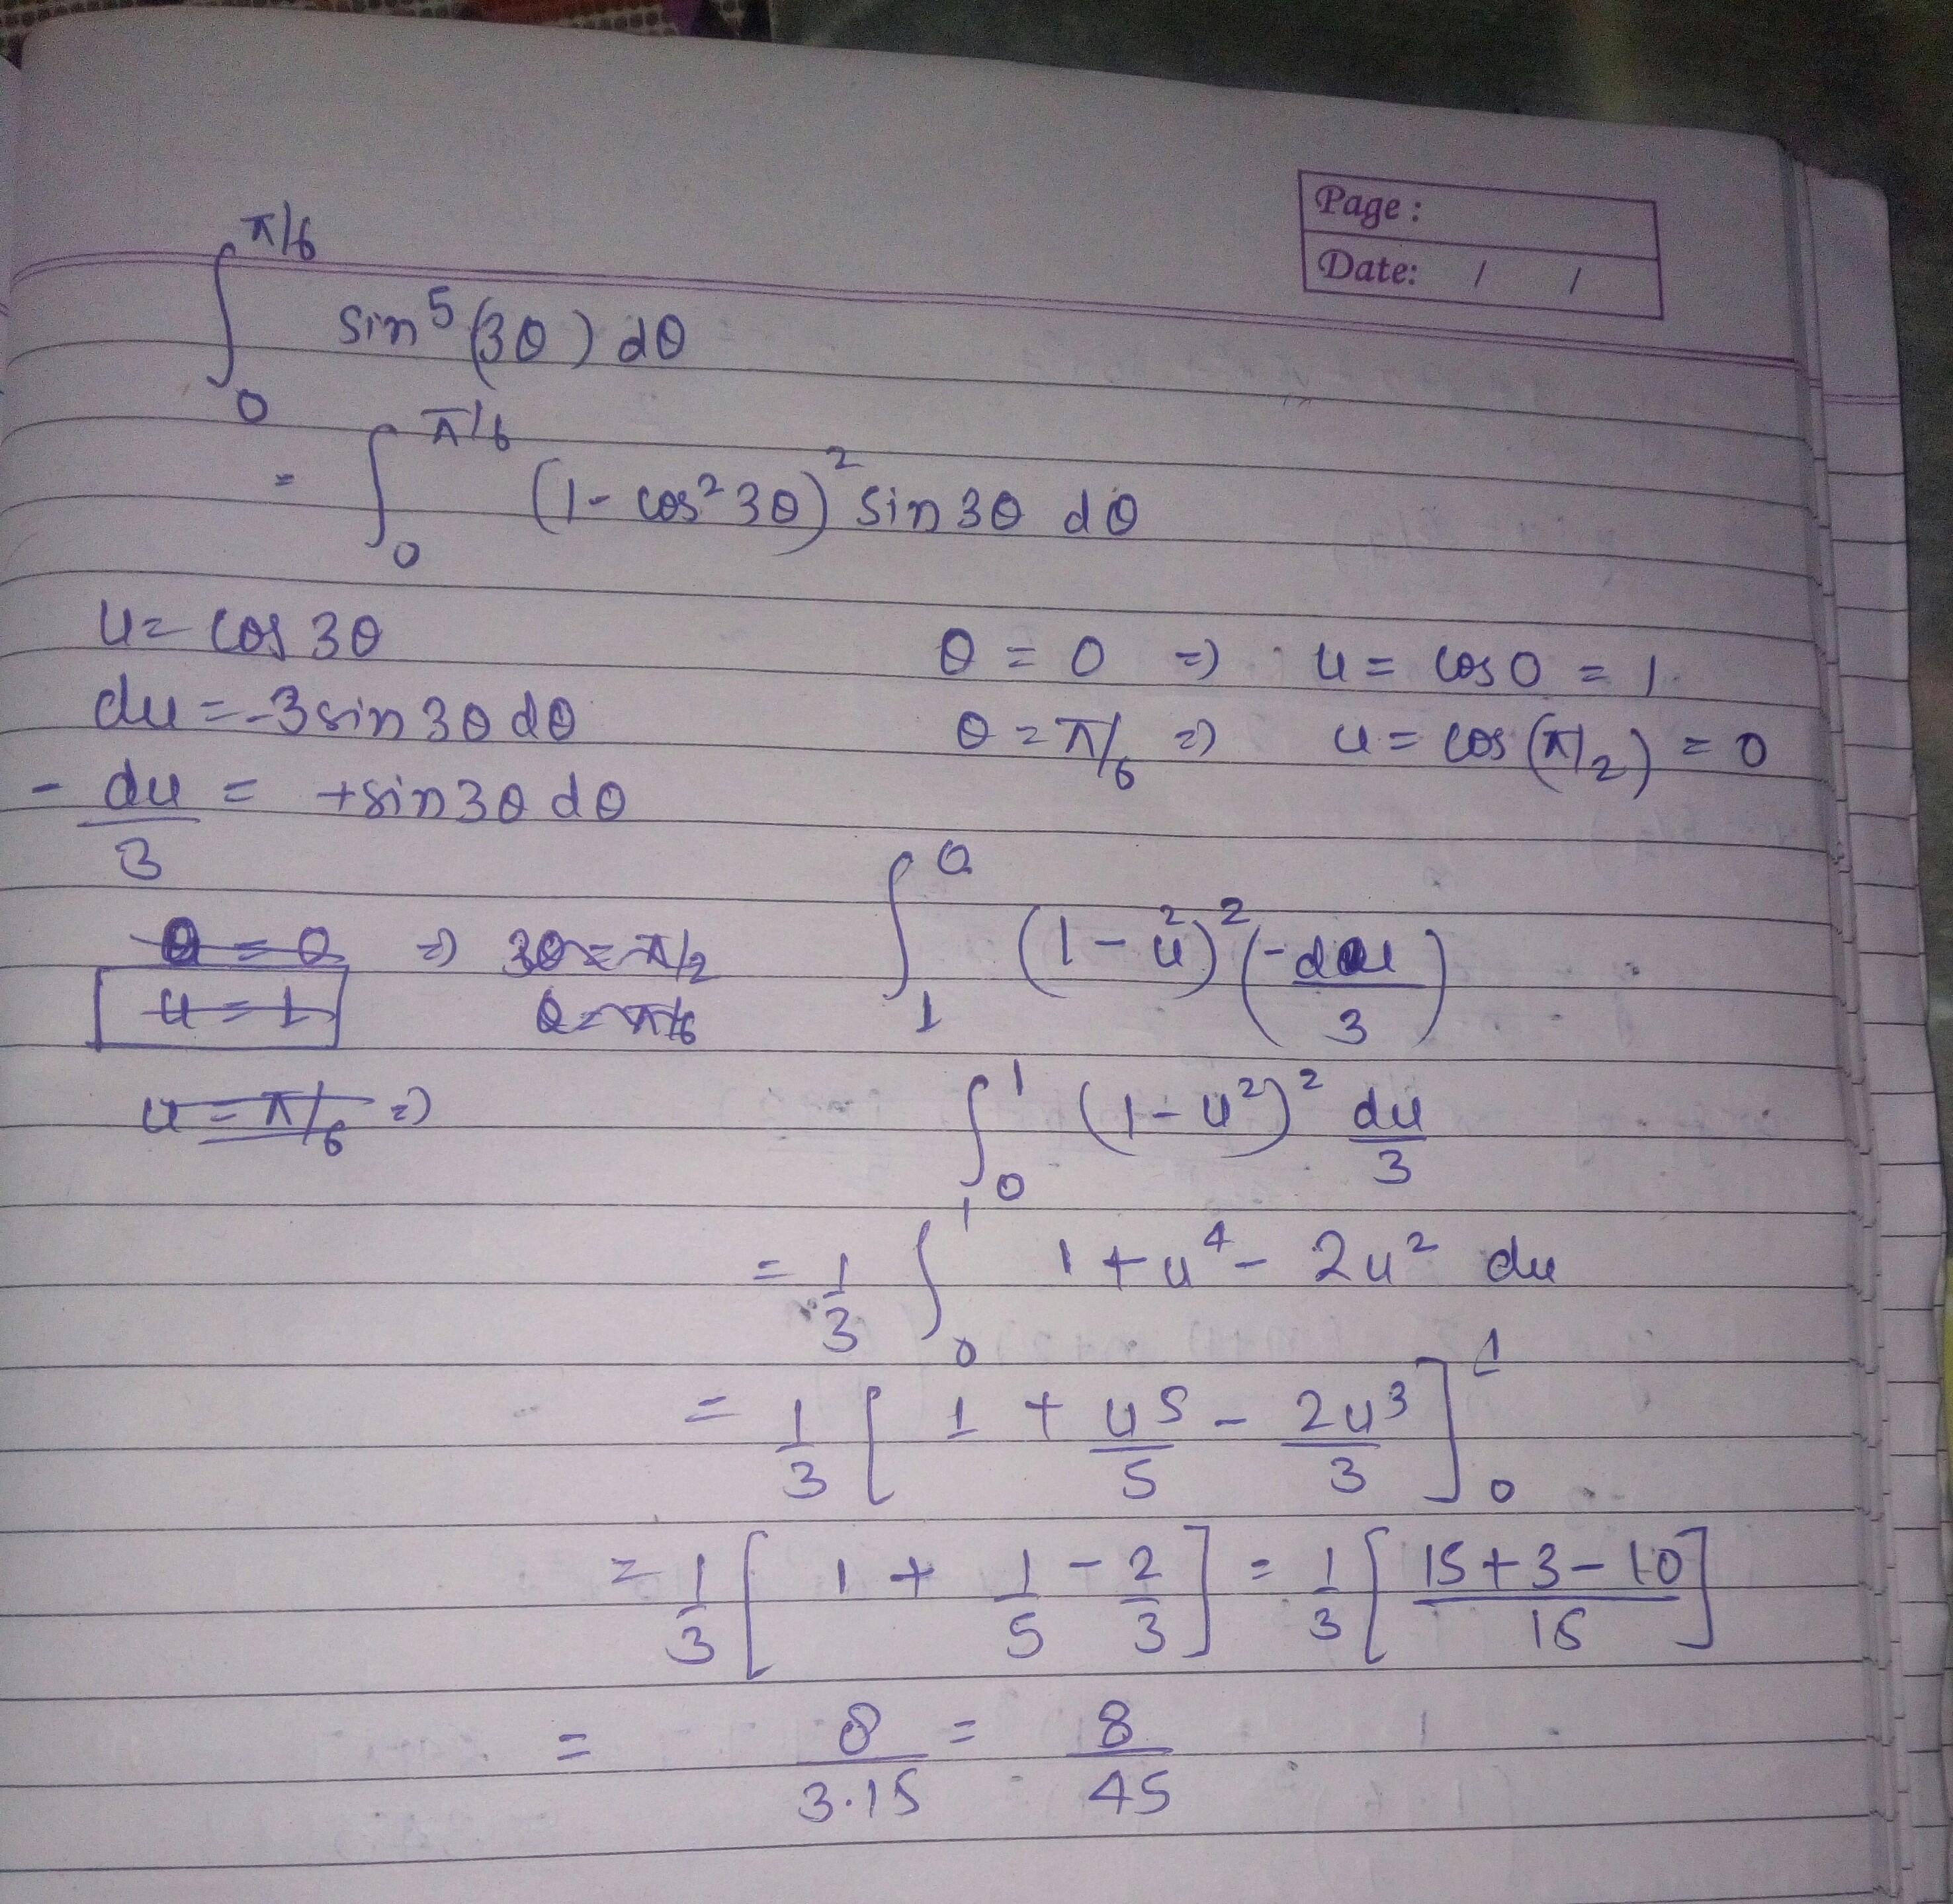 Page :
Date: / /
∫₀^{π/6} sin⁵(3θ) dθ
= ∫₀^{π/6} (1 - cos²3θ)² sin3θ dθ
u = cos 3θ
du = -3 sin 3θ dθ
- du/3 = + sin3θ dθ
θ = 0 ⇒ u = cos 0 = 1
θ = π/6 ⇒ u = cos(π/2) = 0
θ = 0 ⇒ 3θ = π/2
u = 1 θ = π/6
u = π/6 ⇒
∫₁⁰ (1 - u²)² (-du/3)
∫₀¹ (1 - u²)² du/3
= 1/3 ∫₀¹ 1 + u⁴ - 2u² du
= 1/3 [ 1 + u⁵/5 - 2u³/3 ]₀¹
= 1/3 [ 1 + 1/5 - 2/3 ] = 1/3 [ (15+3-10)/15 ]
= 8/(3·15) = 8/45